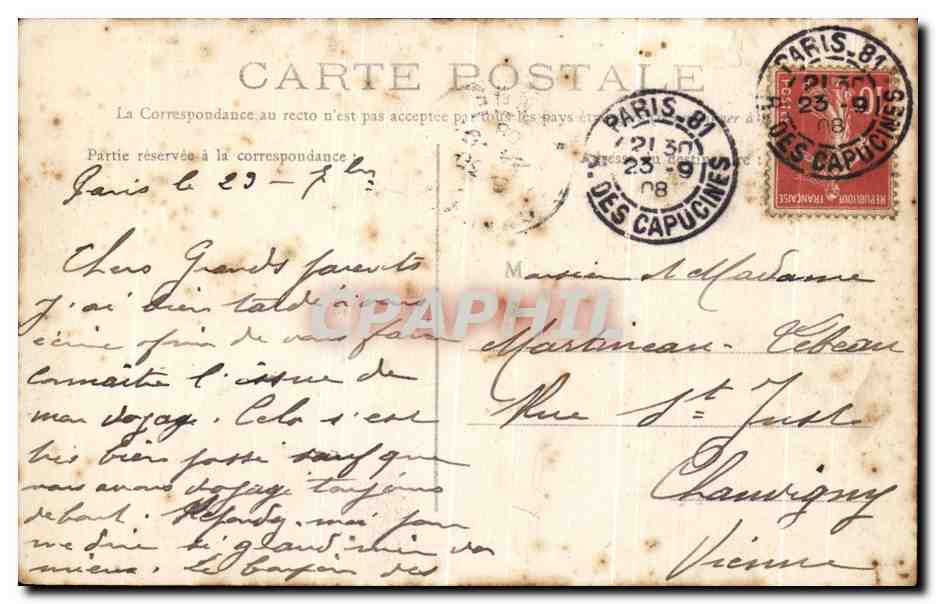 CARTE POSTALE
La Correspondance au recto n'est pas acceptée par tous les pays
Partie réservée à la correspondance :
Paris le 23 - 7bre
Chers Grands parents
J'ai bien tardé à vous
écrire afin de vous faire
connaître l'issue de
mon voyage. Cela s'est
très bien passé sauf que
nous avons voyagé toujours
debout. moi pour
me dire si grand'mère va
mieux. Le des
PARIS-81
21 30
23 -9
08
R. DES CAPUCINES
PARIS-81
21 30
23 -9
08
R. DES CAPUCINES
10
REPUBLIQUE FRANÇAISE
Monsieur et Madame
Martineau-Tébeau
Rue St Just
Chauvigny
Vienne
CPAPHIL